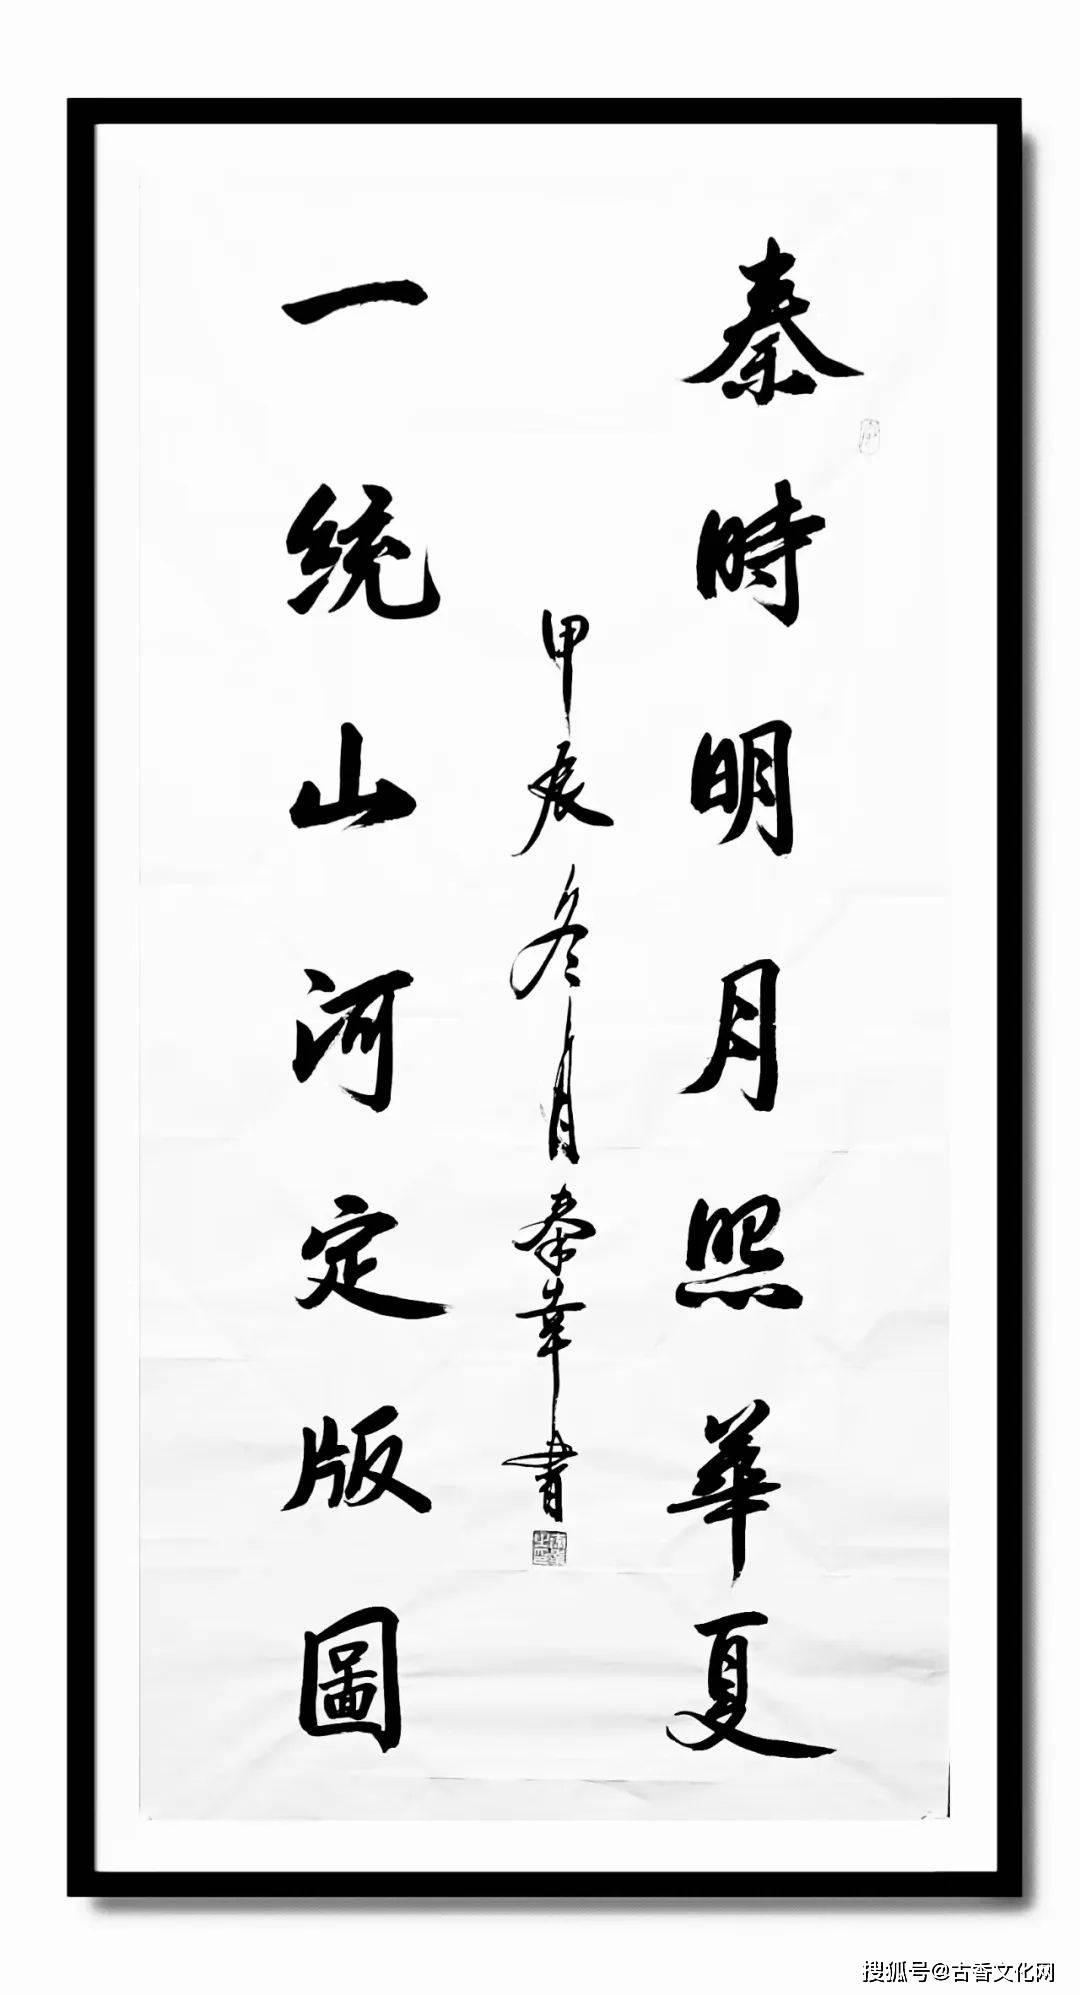 秦時明月照華夏
一統山河定版圖
甲辰冬月秦華書
搜狐号@古香文化网